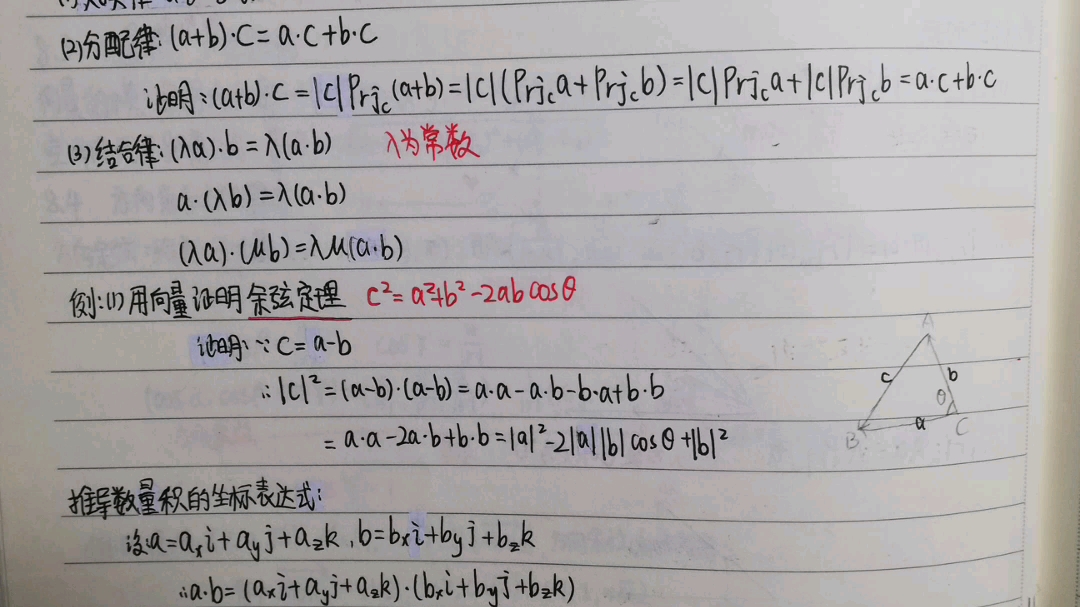 (2)分配律:(a+b)·c=a·c+b·c
证明:(a+b)·c=|c|Prj_c(a+b)=|c|(Prj_c a+Prj_c b)=|c|Prj_c a+|c|Prj_c b=a·c+b·c
(3)结合律:(λa)·b=λ(a·b) λ为常数
a·(λb)=λ(a·b)
(λa)·(μb)=λμ(a·b)
例:(1)用向量证明余弦定理 c²=a²+b²-2ab cosθ
证明:∵c=a-b
∴|c|²=(a-b)·(a-b)=a·a-a·b-b·a+b·b
=a·a-2a·b+b·b=|a|²-2|a||b|cosθ+|b|²
A
c b
θ
B a C
推导数量积的坐标表达式:
设a=a_x i+a_y j+a_z k,b=b_x i+b_y j+b_z k
∴a·b=(a_x i+a_y j+a_z k)·(b_x i+b_y j+b_z k)